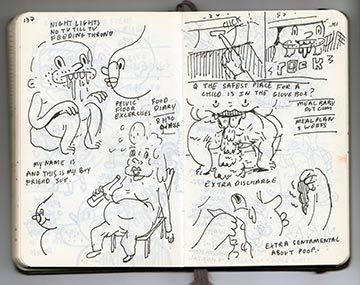 137
NIGHT LIGHTS
NO TV TILL TV
FEEDING THRONE
PELVIC
FLOOR
EXCERCISES
FOOD
DIARY
MY NAME IS
AND THIS IS MY BOY
FRIEND
CLICK
TOCK
Q THE SAFEST PLACE FOR A
CHILD IS IN THE GLOVE BOX?
MEAL BABY
OUT COMS
MEAL PLAN
3 WEEKS
EXTRA DISCHARGE
EXTRA SENTAMENTAL
ABOUT POOP.